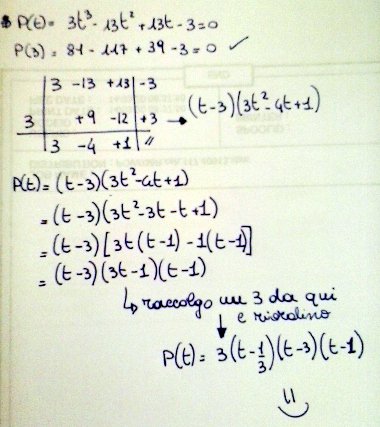 P(t)= 3t³-13t²+13t-3=0
P(3)= 81-117+39-3=0 ✓
3 -13 +13 -3
3 +9 -12 +3 → (t-3)(3t²-4t+1)
3 -4 +1 //
P(t)= (t-3)(3t²-4t+1)
= (t-3)(3t²-3t-t+1)
= (t-3)[3t(t-1)-1(t-1)]
= (t-3)(3t-1)(t-1)
↳ raccolgo un 3 da qui
e riordino
P(t)= 3(t-1/3)(t-3)(t-1)